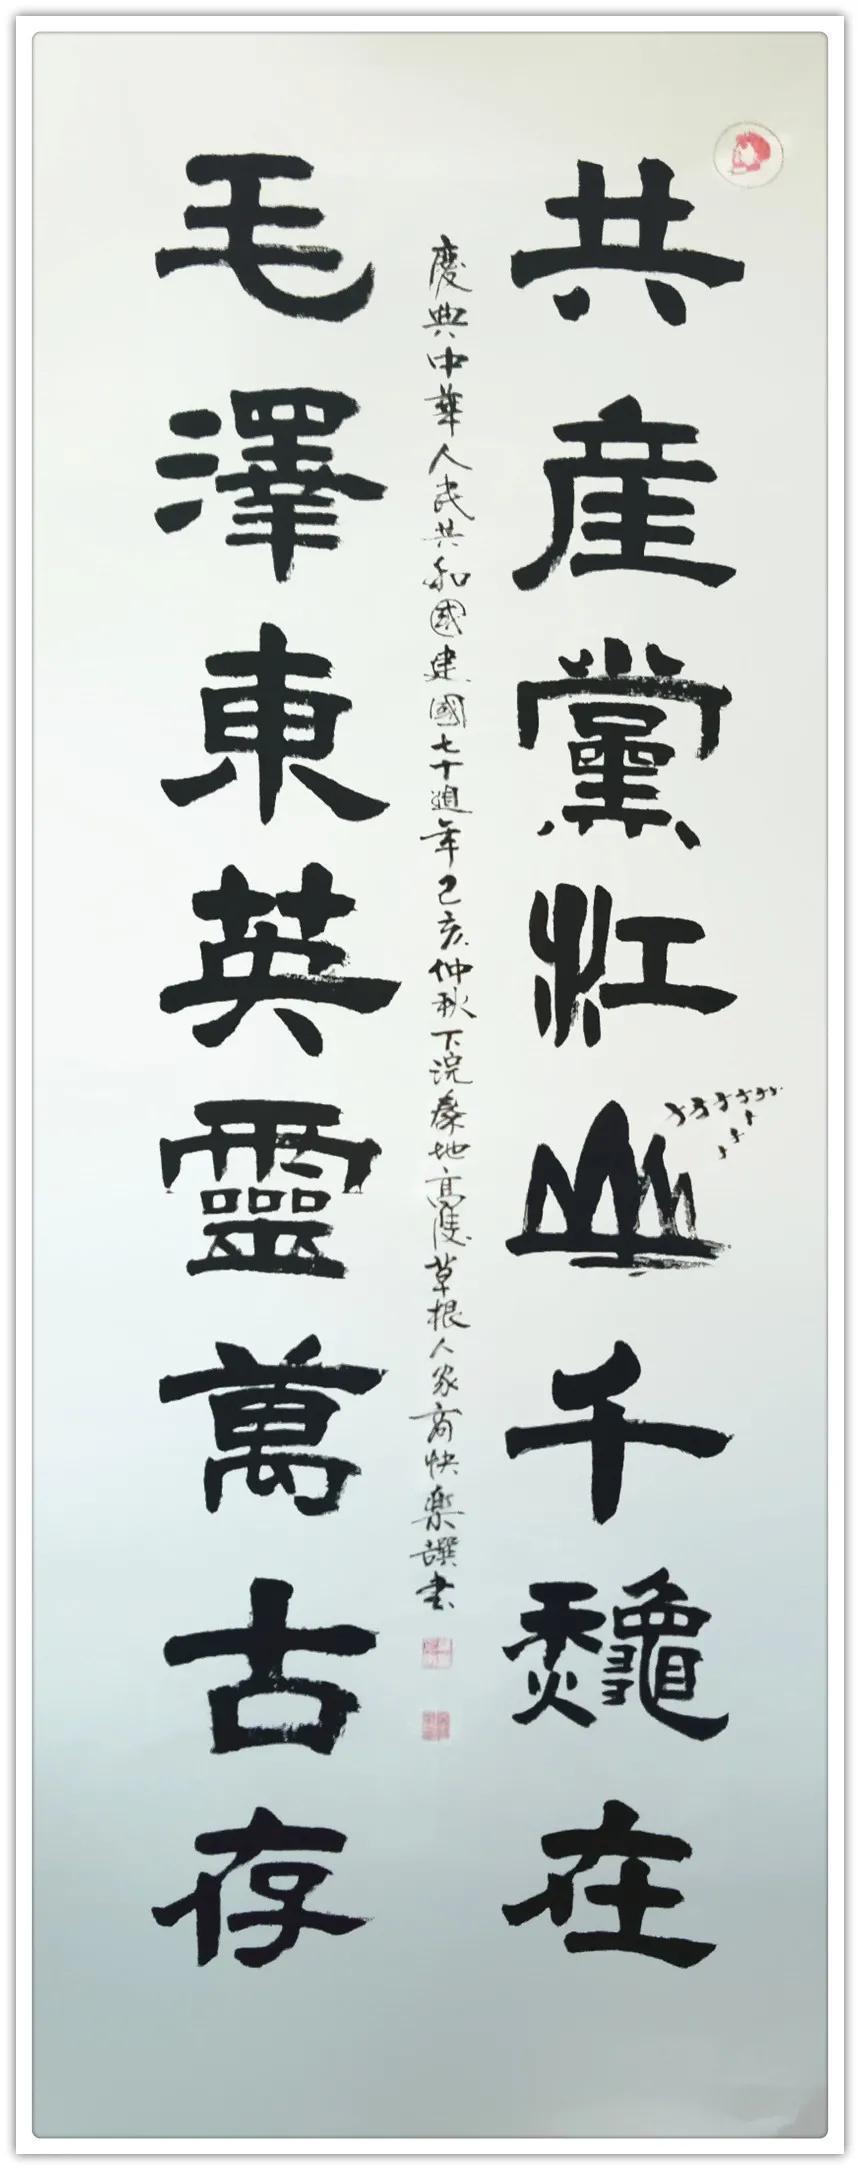 共産黨江山千龝在
慶典中華人民共和國建國七十週年己亥仲秋下浣秦地高陵草根人家商快樂譔書
毛澤東英靈萬古存